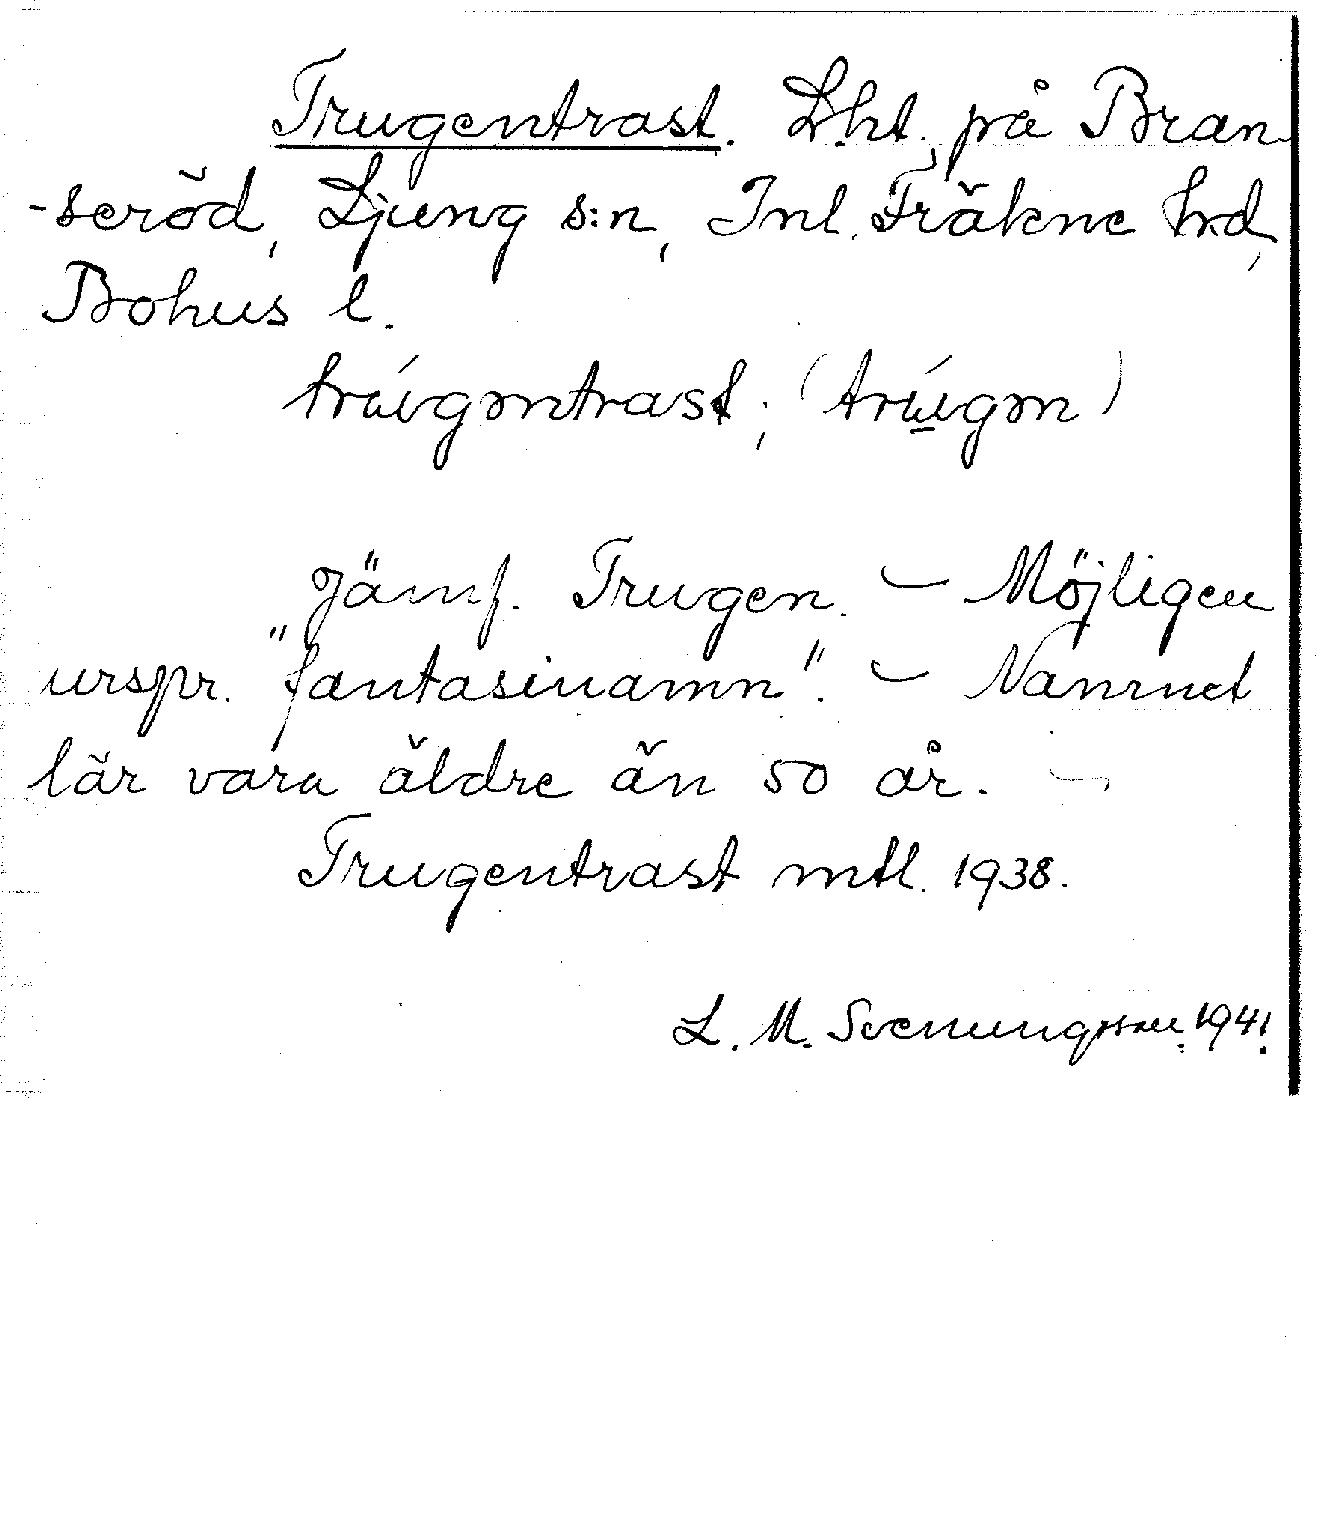 Trugentrast. Lht, på Bran
-seröd, Ljung s:n, Inl. Fräkne hrd,
Bohus l.
trúgəntrast; (trúgən)
Jämf. Trugen. – Möjligen
urspr. "fantasinamn". – Namnet
lär vara äldre än 50 år. –
Trugentrast mtl. 1938.
L. M. Svenungsson. 1941.